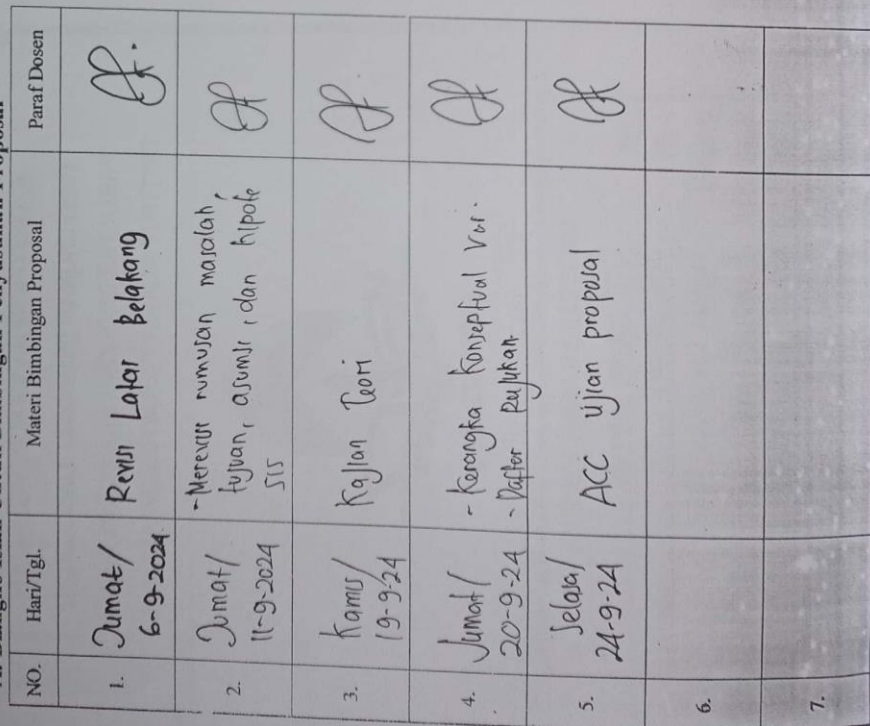 NO.
Hari/Tgl.
Materi Bimbingan Proposal
Paraf Dosen
1.
Jumat/
6-9-2024
Revisi Latar Belakang
2.
Jumat/
11-9-2024
- Merevisi rumusan masalah,
tujuan, asumsi, dan hipote
sis
3.
Kamis/
19-9-24
Kajian Teori
4.
Jumat/
20-9-24
- Kerangka Konseptual Var.
- Daftar Rujukan.
5.
Selasa/
24-9-24
ACC Ujian proposal
6.
7.